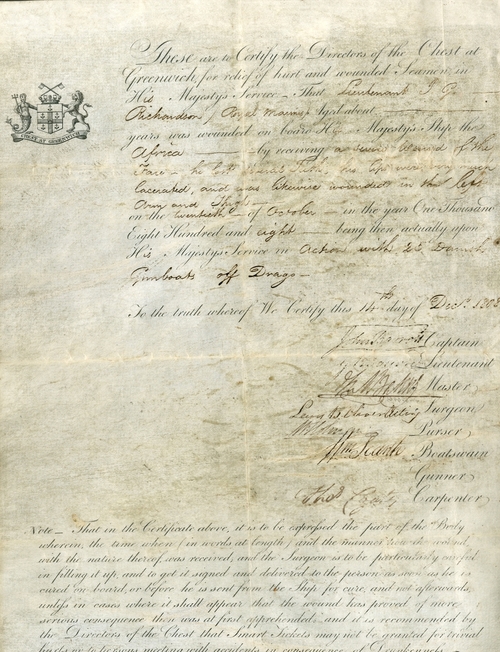 These are to Certify the Directors of the Chest at
Greenwich, for relief of hurt and wounded Seamen in
His Majesty's Service That Lieutenant
Richardson, Royal Marines Aged about
years was wounded on board His Majesty's Ship the
Africa by receiving a severe Wound of the
Face he lost several Teeth, one lip very much
lacerated, and was likewise wounded in the left
Arm and Thigh
on the twentieth of October in the year One Thousand
Eight Hundred and eight being then actually upon
His Majesty's Service in Action with 25 Danish
Gunboats off Drago
To the truth whereof We Certify this 14th day of Decr. 1808
Captain
Lieutenant
Master
Surgeon
Purser
Boatswain
Gunner
Carpenter
CHEST AT GREENWICH
Note That in the Certificate above, it is to be expressed the part of the Body
wherein, the time when (in words at length) and the manner how the wound
with the nature thereof, was received, and the Surgeon is to be particularly careful
in filling it up, and to get it signed and delivered to the person as soon as he is
cured on board, or before he is sent from the Ship for cure, and not afterwards,
unless in cases where it shall appear that the wound has proved of more
serious consequence then was at first apprehended: and it is recommended by
the Directors of the Chest that Smart Tickets may not be granted for trivial
hurts or to persons meeting with accidents in consequence of Drunkenness